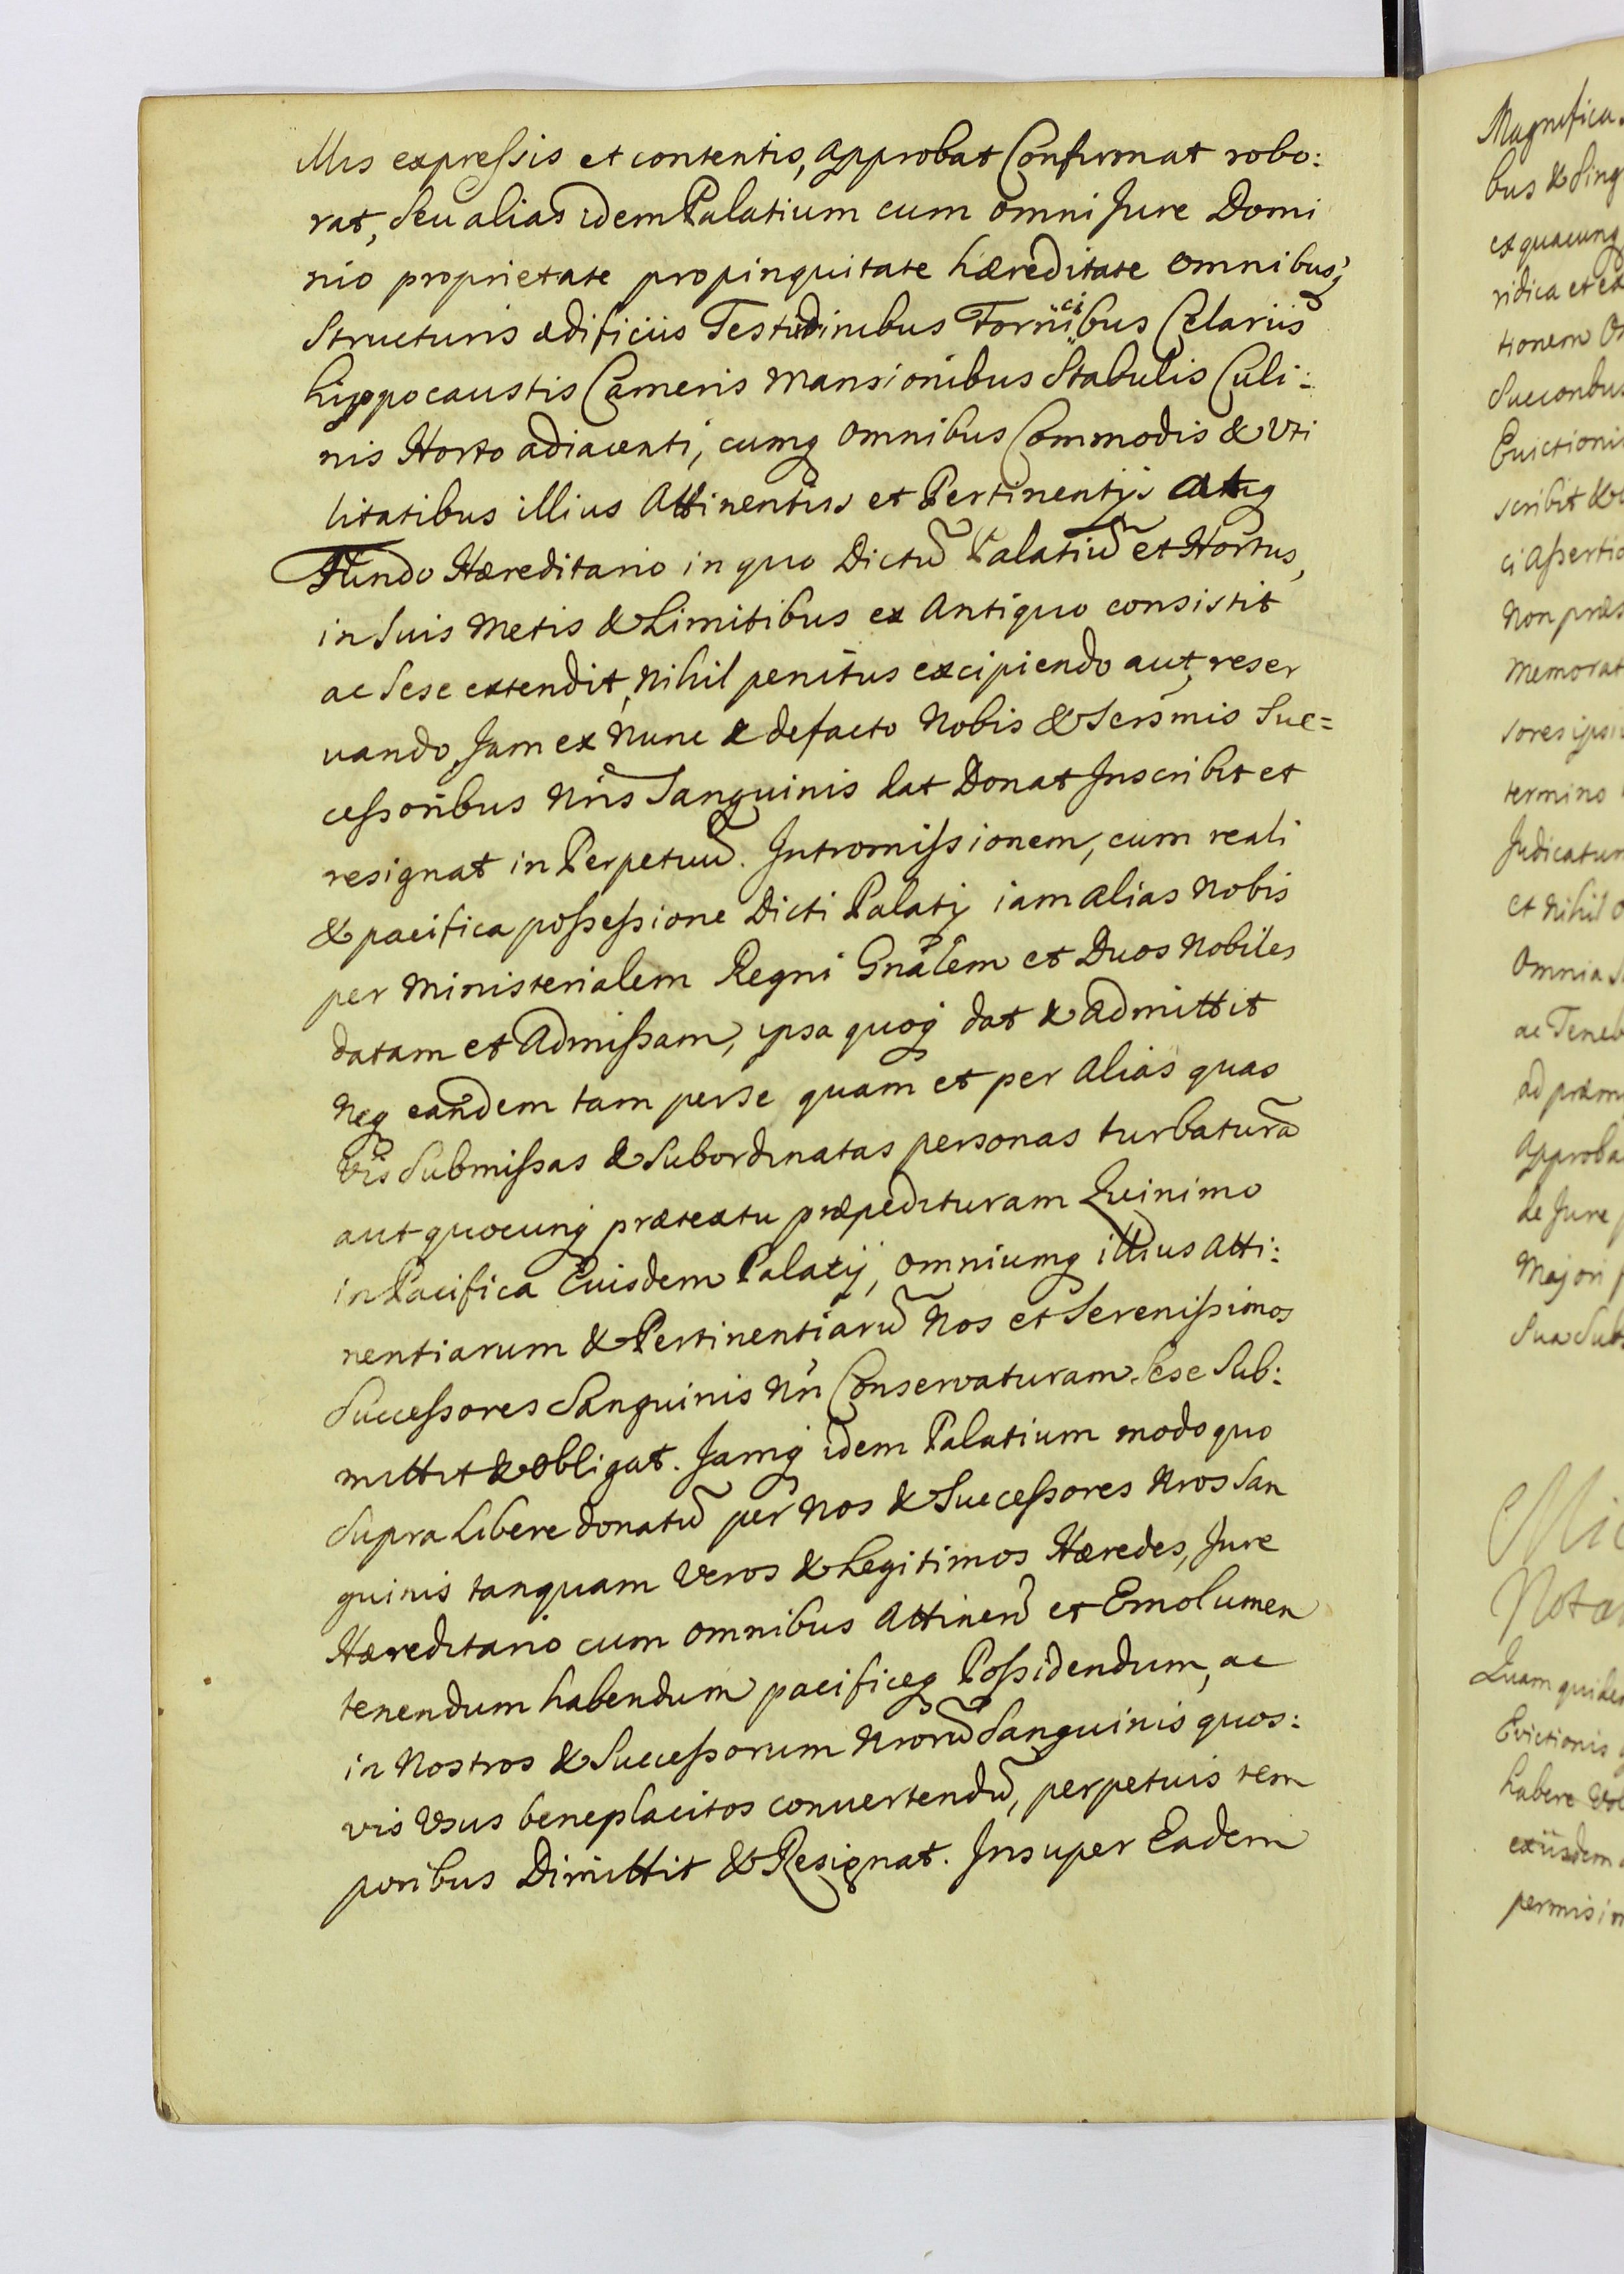 illis expressis et contentis, approbat Confirmat robo:
rat, Seu alias idem Palatium cum omni Jure Domi
nio proprietate propinquitate hæreditate omnibusq
Structuris ædificiis Testudinibus Fornicibus Celariis
hippocaustis Cameris Mansionibus Stabulis Culi:
nis Horto adiacenti, cumq omnibus Commodis & Uti
litatibus illius Attinentiis et Pertinentijs atq
Fundo Hæreditario in quo Dictū Palatiū et Hortus,
in Suis Metis & Limitibus ex Antiquo consistit
ac Sese extendit, Nihil penitus excipiendo aut reser
uando, Jam ex Nunc & defacto Nobis & Serѕmis Suc=
cessoribus Nris Sanguinis dat Donat Inscribit et
resignat in Perpetuū. Intromissionem, cum reali
& pacifica possessione Dicti Palatij iam alias Nobis
per Ministerialem Regni Gnālem et Duos Nobiles
datam et Admissam, ipsa quoq dat & admittit
Neq eandem tam perse quam et per alias quas
vis Submissas & Subordinatas personas turbaturā
aut quocunq prætextu præpedituram Quinimo
in Pacifica Euisdem Palatij, omniumq illius Atti:
nentiarum & Pertinentiarū Nos et Serenissimos
Successores Sanguinis Nri Conservaturam Sese Sub:
mittit & Obligat. Jamq idem Palatium modo quo
Supra Libere donatū per Nos & Successores Nros San
guinis tanquam Veros & Legitimos Hæredes, Jure
Hæreditario cum omnibus Attinen et Emolumen
tenendum habendum pacificeq Possidendum, ac
in Nostros & Successorum Nrorū Sanguinis quos:
vis Usus beneplacitos convertendū, perpetuis tem
poribus Dimittit & Resignat. Insuper Eadem
Magnifica
bus & Sing
ex quacunq
ridica et
tionem
Evictionis
scribit &
Non præs
Memorat
sores ipsi
termino
Judicatum
et Nihil
Omnia
ac Teneb
ad præm
Approba
de Jure
Majori
Sua Sub
Mic
Nota
Quam quidem
Evictionis
habere
exiisdem
permis in